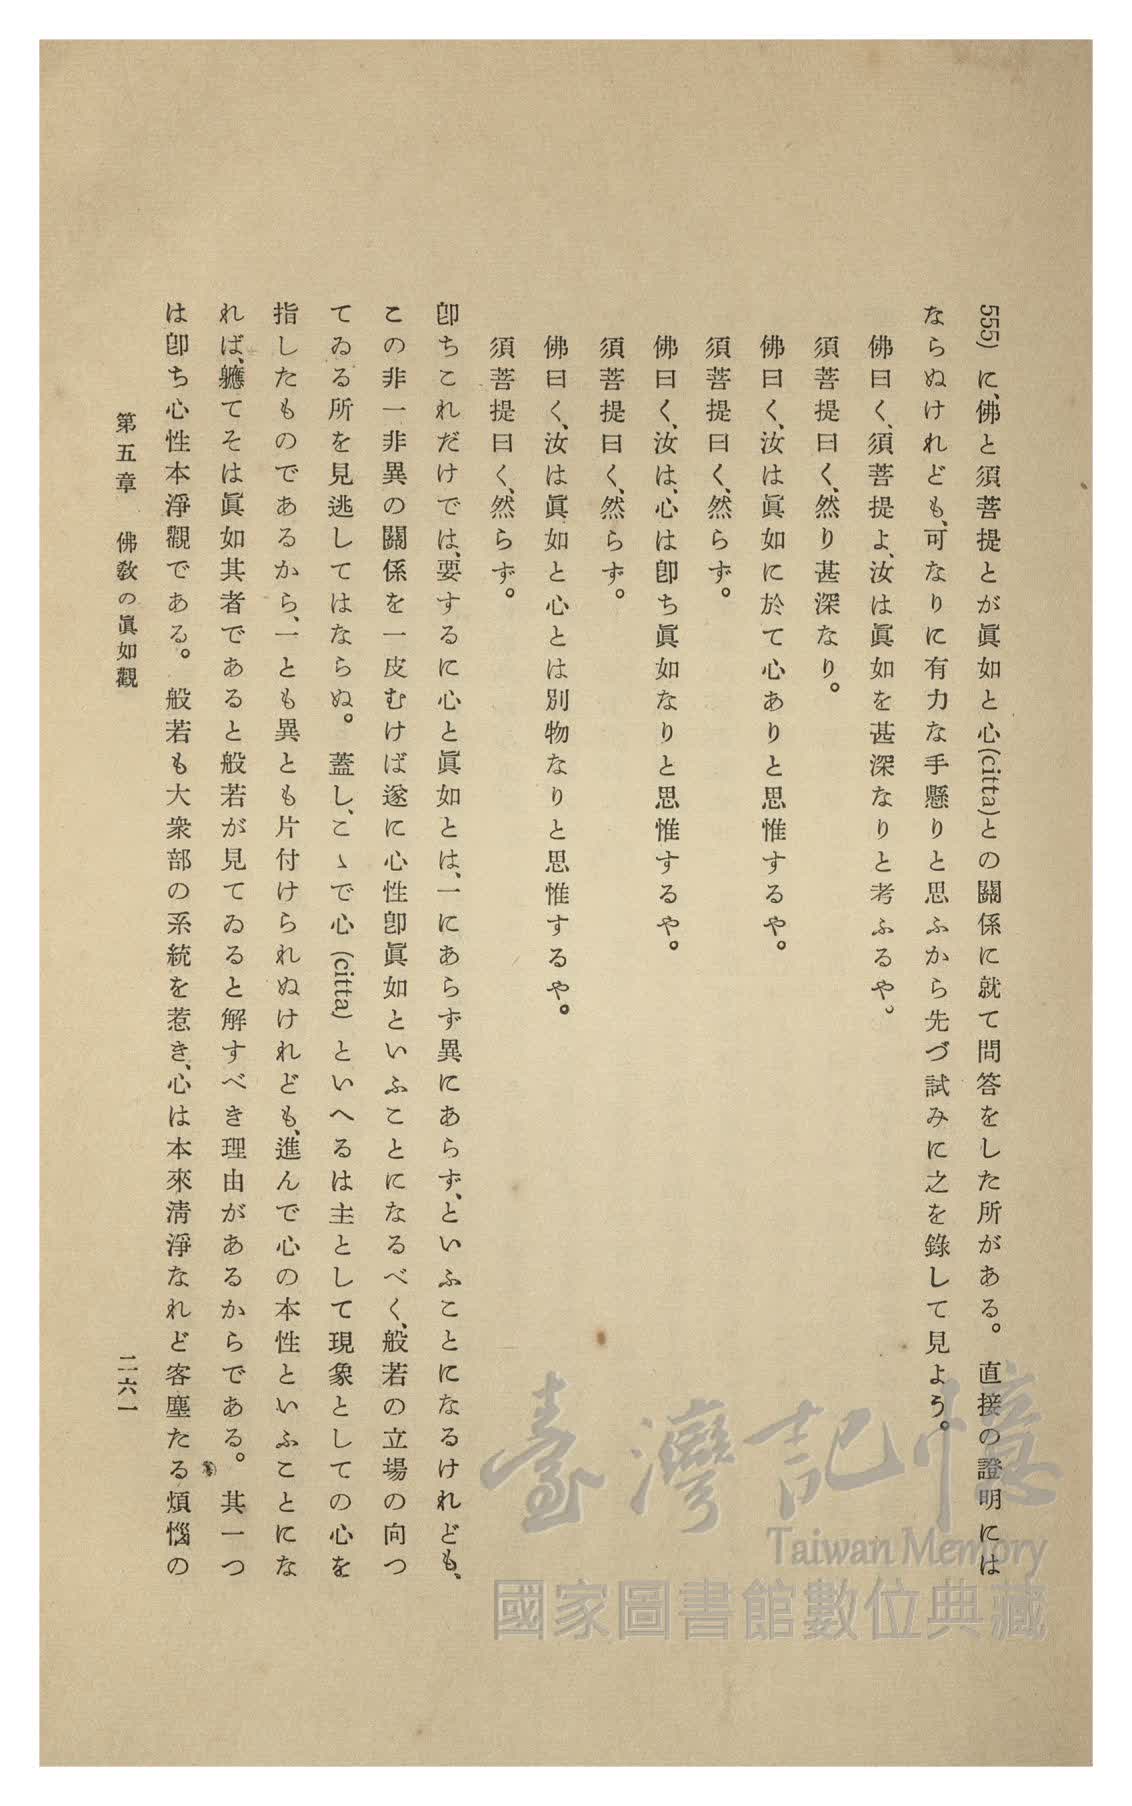 555) に、佛と須菩提とが眞如と心(citta)との關係に就て問答をした所がある。直接の證明には
ならぬけれども、可なりに有力な手懸りと思ふから先づ試みに之を錄して見よう。
佛曰く、須菩提よ、汝は眞如を甚深なりと考ふるや。
須菩提曰く、然り甚深なり。
佛曰く、汝は眞如に於て心ありと思惟するや。
須菩提曰く、然らず。
佛曰く、汝は、心は卽ち眞如なりと思惟するや。
須菩提曰く、然らず。
佛曰く、汝は眞如と心とは別物なりと思惟するや。
須菩提曰く、然らず。
卽ちこれだけでは、要するに心と眞如とは、一にあらず異にあらず、といふことになるけれども、
この非一非異の關係を一皮むけば遂に心性卽眞如といふことになるべく、般若の立場の向つ
てゐる所を見逃してはならぬ。蓋し、こゝで心 (citta) といへるは主として現象としての心を
指したものであるから、一とも異とも片付けられぬけれども、進んで心の本性といふことにな
れば、軈てそは眞如其者であると般若が見てゐると解すべき理由があるからである。其一つ
は卽ち心性本淨觀である。般若も大衆部の系統を惹き、心は本來淸淨なれど客塵たる煩惱の
第五章 佛敎の眞如觀
二六一
臺灣記憶
Taiwan Memory
國家圖書館數位典藏